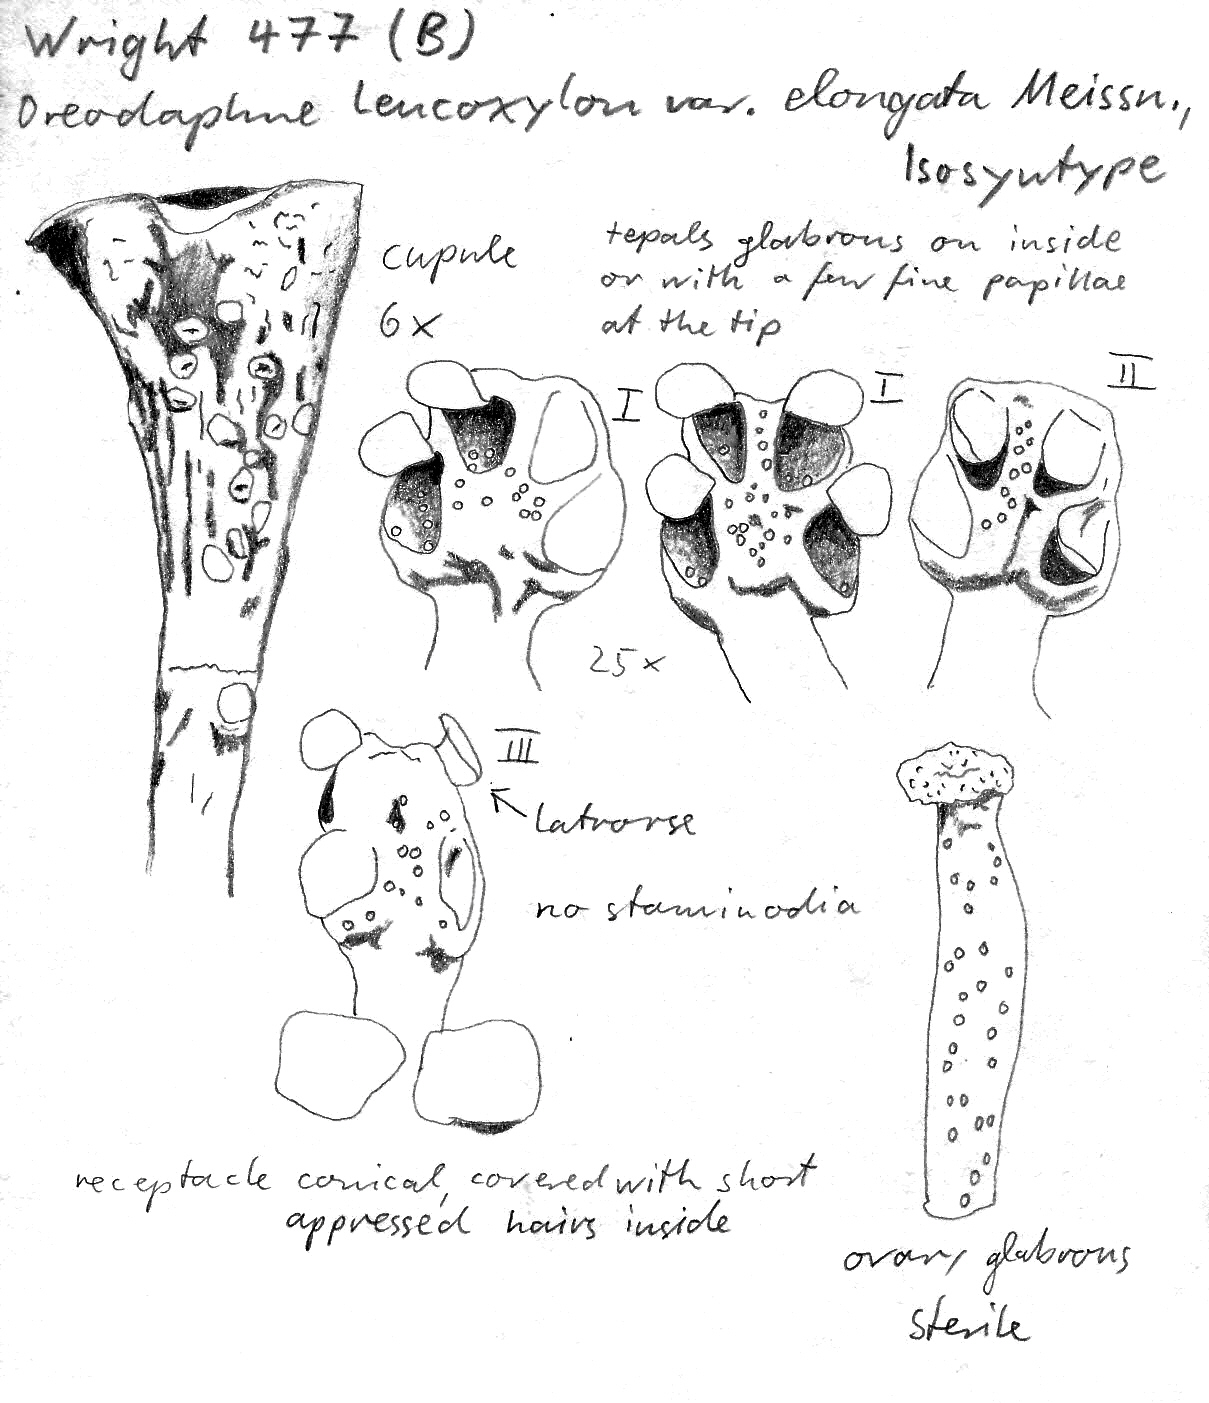 Wright 477 (B)
Oreodaphne Leucoxylon var. elongata Meissn.,
Isosyntype
cupule
6x
tepals glabrous on inside
or with a few fine papillae
at the tip
I
I
II
25x
III
latrorse
no staminodia
receptacle conical, covered with short
appressed hairs inside
ovary glabrous
sterile